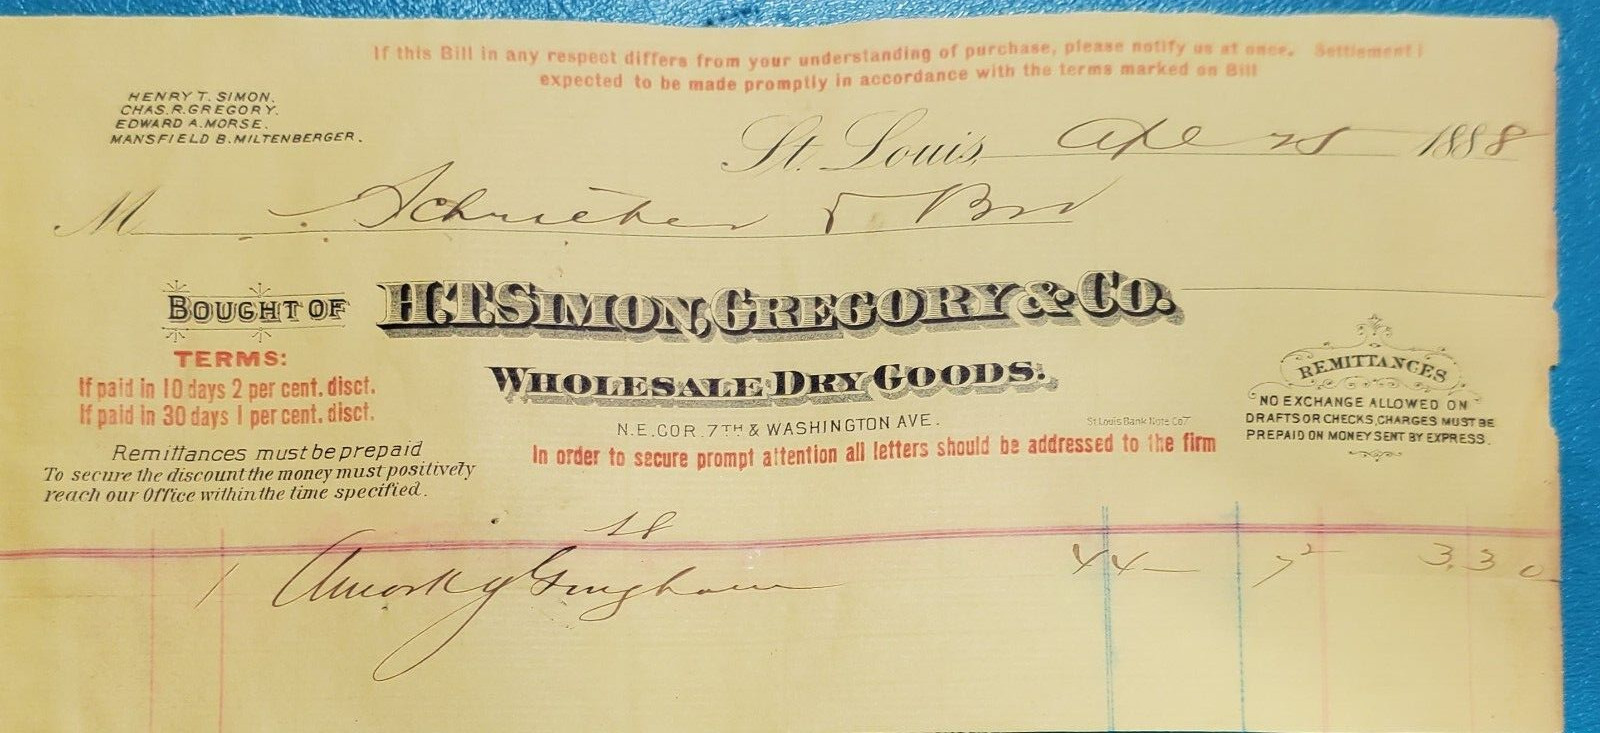 If this Bill in any respect differs from your understanding of purchase, please notify us at once. Settlement i
expected to be made promptly in accordance with the terms marked on Bill
HENRY T. SIMON.
CHAS. R. GREGORY.
EDWARD A. MORSE.
MANSFIELD B. MILTENBERGER.
St. Louis, 1888
M & Bro
BOUGHT OF H.T. SIMON, GREGORY & CO.
TERMS:
If paid in 10 days 2 per cent. disct.
If paid in 30 days 1 per cent. disct.
WHOLESALE DRY GOODS.
REMITTANCES
NO EXCHANGE ALLOWED ON
DRAFTS OR CHECKS, CHARGES MUST BE
PREPAID ON MONEY SENT BY EXPRESS.
N.E. COR. 7TH & WASHINGTON AVE.
St Louis Bank Note Co
In order to secure prompt attention all letters should be addressed to the firm
Remittances must be prepaid
To secure the discount the money must positively
reach our Office within the time specified.
18
1 Gingham 44 7 2 3.30